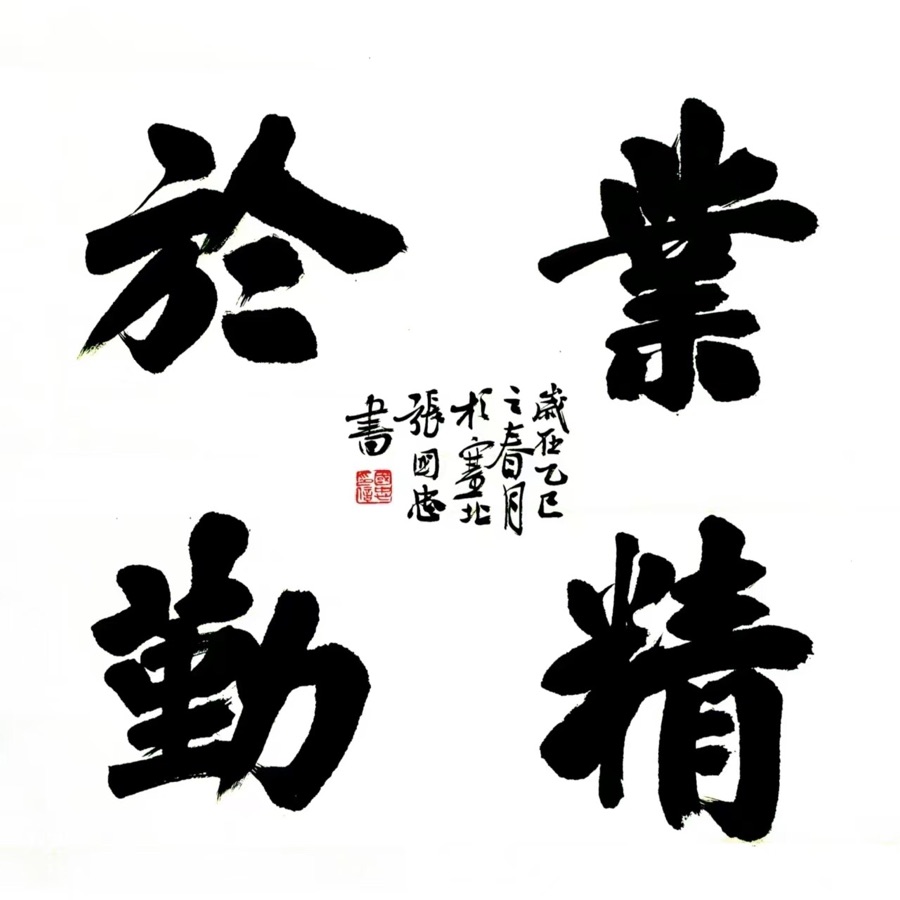 業精
於勤
歲在乙巳
之春月
於塞北
張國忠
書